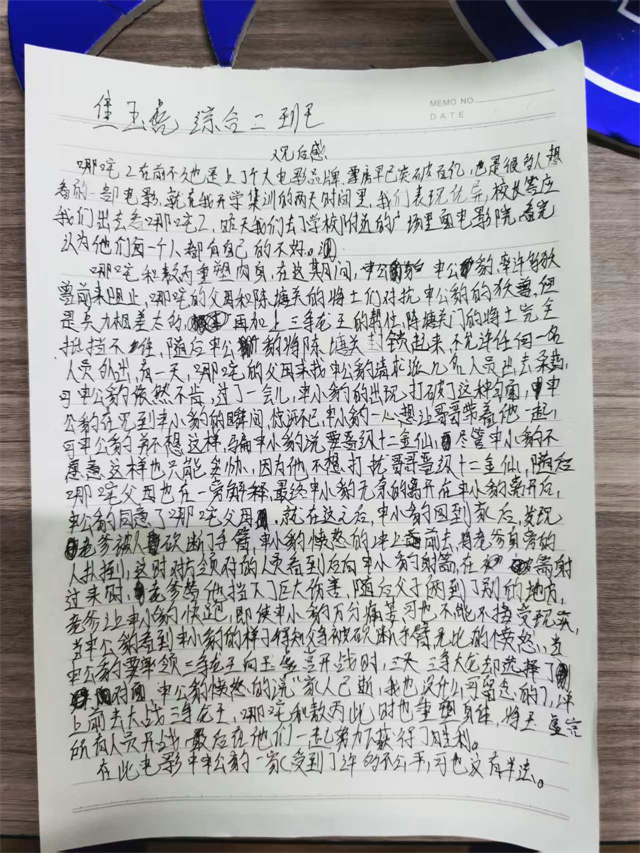 MEMO NO.
DATE
综合二到七
观后感
哪吒2在前不久也迷上了个大电影品牌,票房早已突破百亿,也是很多人想
看的一部电影,就在我开学集训的两天时间里,我们表现优异,校长答应
我们出去看哪吒2,昨天我们去了学校附近的广场里面电影院,看完
认为他们每一个人都有自己的不好。
哪吒和敖丙重塑肉身,在这期间,申公豹率许多妖
兽前来阻止,哪吒的父母和陈塘关的将士们对抗申公豹的妖兽,但
是实力相差太多,再加上三海龙王的帮忙,陈塘关门的将士完全
抵挡不住,随后申公豹将陈塘关封锁起来,不允许任何一名
人员外出,有一天,哪吒的父母来找申公豹请求派几名人员出去采药,
可申公豹依然不肯,过了一会儿,申小豹的出现,打破了这种局面,申
公豹在见到申小豹的瞬间,申小豹一心想让哥哥带着他一起,
可申公豹并不想这样,骗申小豹说要晋级十二金仙,尽管申小豹不
愿意这样也只能妥协,因为他不想打扰哥哥晋级十二金仙,随后
哪吒父母也在一旁解释,最终申小豹无奈的离开在申小豹离开后,
申公豹同意了哪吒父母,就在这之后,申小豹回到家后,发现
老爹被人砍断了手臂,申小豹愤怒的冲上前去,将老爹身旁的
人打倒,这时对方领有的人员看到后向申小豹射箭,在箭射
过来时,老爹替他挡下了巨大伤害,随后父子俩到了别的地方,
老爹让申小豹快跑,即使申小豹万分痛苦可也不能不接受现实,
当申公豹看到申小豹的样子得知父亲被砍断手臂无比的愤怒,当
申公豹要率领三海龙王向玉虚宫开战时,三天三海大龙却选择了
申公豹愤怒的说“家人已逝,我也没什么可留恋的了,冲
上前去大战三海龙王,哪吒和敖丙此时也重塑身体,将玉虚宫
所有人员开战,最后在他们一起努力下获得了胜利。
在此电影中申公豹一家受到了许多的不公平,可也没有办法。